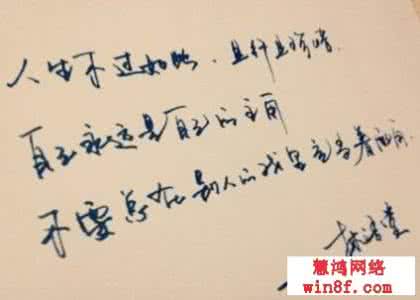 人生不过如此,且行且珍惜.
自己永远是自己的主角
不要总在别人的戏里充当着配角.
林语堂
慧鸿网络
win8f.com